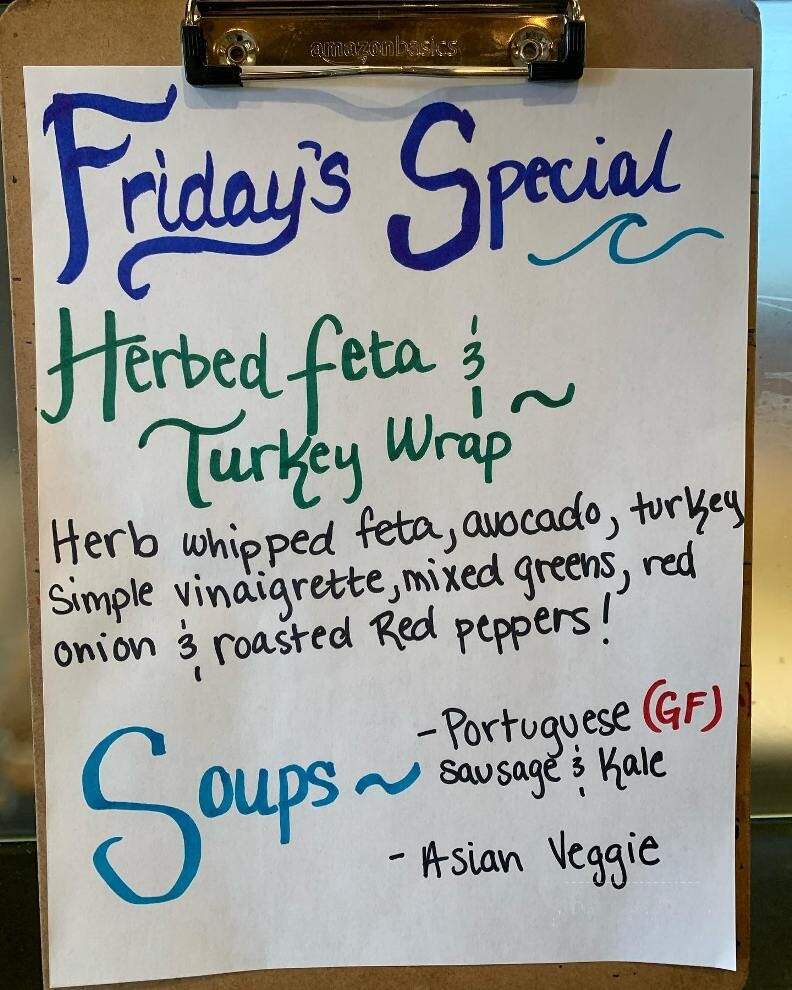 amazonbasics
Friday's Special
Herbed feta &
Turkey Wrap
Herb whipped feta, avocado, turkey
simple vinaigrette, mixed greens, red
onion & roasted Red peppers!
Soups ~
- Portuguese (GF)
sausage & Kale
- Asian Veggie